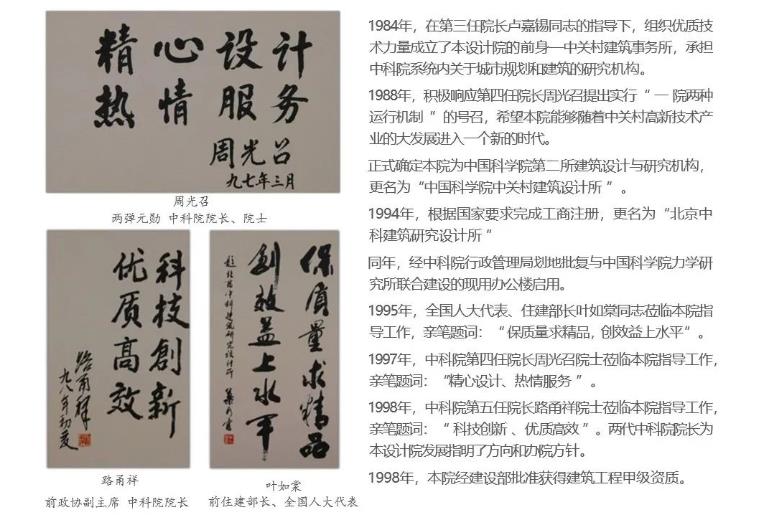 精心设计
热情服务
周光召
九七年三月
周光召
两弹元勋 中科院院长、院士
科技創新
优质高效
路甬祥
九八年初夏
路甬祥
前政协副主席 中科院院长
保质量求精品
创效益上水平
题北京中科建筑研究设计所
叶如棠
叶如棠
前住建部长、全国人大代表
1984年，在第三任院长卢嘉锡同志的指导下，组织优质技
术力量成立了本设计院的前身—中关村建筑事务所，承担
中科院系统内关于城市规划和建筑的研究机构。
1988年，积极响应第四任院长周光召提出实行“ 一 院两种
运行机制 ”的号召，希望本院能够随着中关村高新技术产
业的大发展进入一个新的时代。
正式确定本院为中国科学院第二所建筑设计与研究机构，
更名为“中国科学院中关村建筑设计所 ”。
1994年，根据国家要求完成工商注册，更名为“北京中
科建筑研究设计所 ”
同年，经中科院行政管理局划地批复与中国科学院力学研
究所联合建设的现用办公楼启用。
1995年，全国人大代表、住建部长叶如棠同志莅临本院指
导工作，亲笔题词：“保质量求精品，创效益上水平”。
1997年，中科院第四任院长周光召院士莅临本院指导工作，
亲笔题词：“精心设计、热情服务 ”。
1998年，中科院第五任院长路甬祥院士莅临本院指导工作，
亲笔题词：“ 科技创新 、优质高效 ”。两代中科院院长为
本设计院发展指明了方向和办院方针。
1998年，本院经建设部批准获得建筑工程甲级资质。